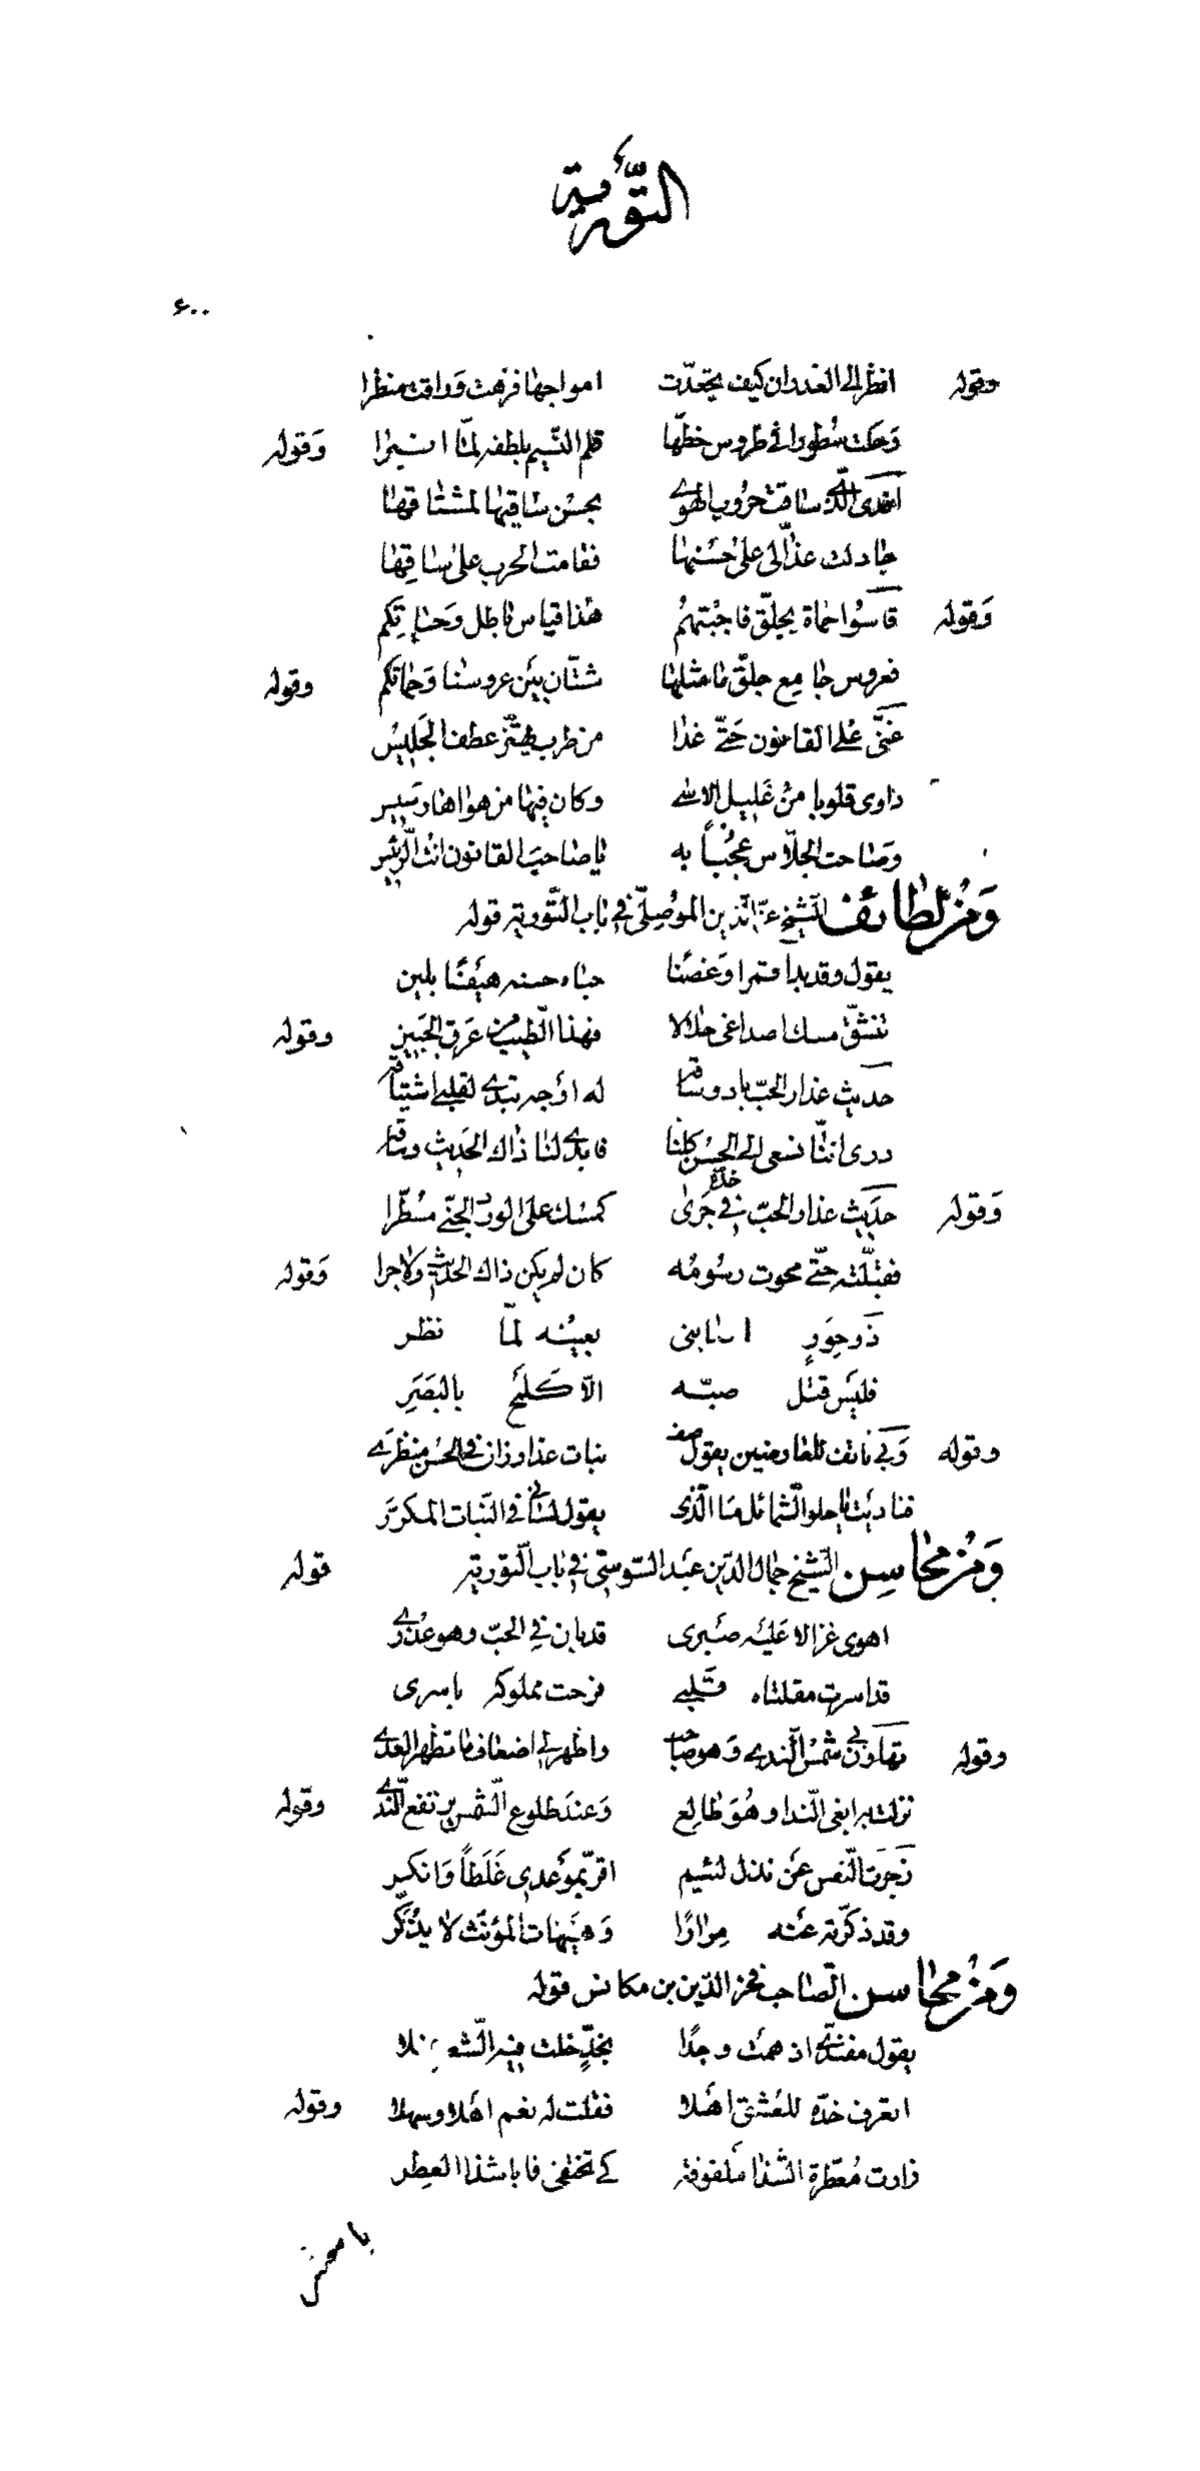 التّورية
۶۰۰
وقوله انظر الى الغدران كيف تجعّدت امواجها فزهت وراقت منظرا
وَحكت سُطورا في طروس خطّها قلم النّسيم بلطفه لمّا انبرا وَقوله
افدى الّتي ساقت حروب الهوى بحسن ساقيها لمشتاقها
جادلت عذّالى على حُسنها فقامت الحرب على ساقِها
وَقوله قاسُوا حماة بجلّق فاجبْتهُم هٰذا قياس باطل وَحياتِكم
فعروس جامِع جلّق ما مثلها شتّان بيَن عروسنا وَحماتكم وقوله
غنّى عَلى القانون حَتّى غدا من طرب يهتزّ عطف الجَليسْ
داوى قلوبا مِنْ غَليل الاسى وكان فيها من هواها رسيس
وصاحت الجلّاس عُجْباً به يا صاحبَ القانون انتَ الرّئيس
وَمِنْ لطائف الشّيخ عزّ الدّين الموْصِلىّ فى باب التّورية قوله
يقول وقد بدا قمرا وَغصنًا حباه حسنه هيَفًا بلين
تنشّق مسك اصداغى حلالا فهذا الطّيب من عَرَق الجَبين وقوله
حديث عذار الحبّ باد وساقه له اوْجه تبدى لقلبى اشتياقه
درى انّنا نسعى الى الحُسْن كلنا فابدى لنا ذاك الحَديث وساقه
وَقوله حديث عذار الحبّ فى خدّه جَرىٰ كمسْك علَى الورد الجنّى مسُطّرا
فقبّلته حتّى محوت رسُومُه كان لم يكن ذاك الحديث ولا جرا وَقوله
ذو حوَرٍ اصابنى بعيْنه لمّا نظر
فليَس قتْل صبّه الّا كلمْح بالبَصَرِ
وقوله وَفى نابَت للعارضين يقول صف نبات عذار زان فى الحُسن منظرى
فناديْت يا حلو الشّمائل ما الّذى يقول لسانى فى النّبات المكرّر
وَمِنْ محاسِن الشّيخ جمال الدّين عبَد السّوسىّ فى باب التّورية قوله
اهوى غزالا عَليْه صَبرى قد بان فِى الحبّ وهو عُذرى
قد اسرت مقلتاه قلبى فرحت مملوكه باسرى
وقوله تهاون بى شمْس النّدى وَهو صاحب واظهر لى اضعاف ما تظهر العدى
نزلت به ابغى النّدا وهُوَ طالِع وَعندَ طلوع الشّمس يرتفع النّدى وقوله
زجَرت النّفس عَن نذل لئيم اقرّ بموْعدى غَلَطاً وَانكر
وقد ذكّرته عَنْه مِرارًا وَهيَهات المؤنّث لا يذُكّر
وَمِنْ محاسن الصّاحب فخر الدّين بن مكانس قوله
يقول مفنّدى اذ همْت وجدًا بخدٍّ خلت فيه الشّعر نملا
اتعرف خدّه للعشق اهَلا فقلت له نعم اهَلا وسهلا وقوله
زارت مُعطّرة الشّذا مَلفوفة كى تختفى فابا شذا العِطر